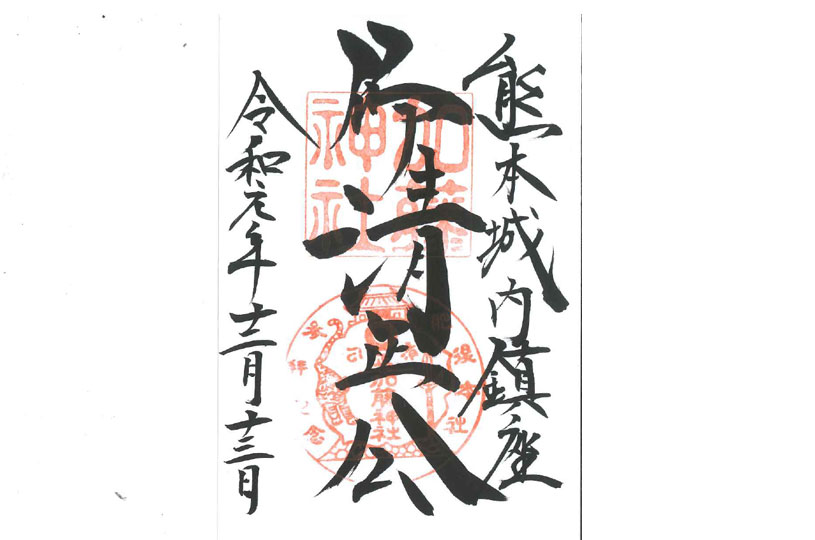 熊本城内鎮座
清正公
令和元年十二月十三日
加藤神社
加藤神社